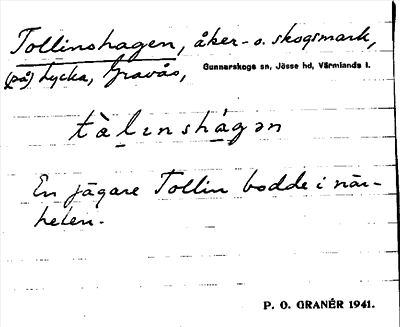 Tollinshagen, åker- o. skogsmark,
(på) Lycka, Gravås, Gunnarskogs sn, Jösse hd, Värmlands l.
tàlınshágən
En jägare Tollin bodde i när-
heten.
P. O. GRANÉR 1941.